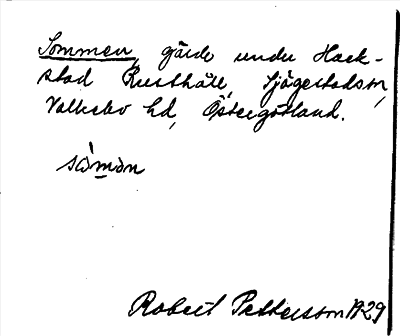 Sommen, gärde under Hack-
stad Rusthåll, Sjögestads sn,
Valkebo hd, Östergötland.
Robert Pettersson 1929